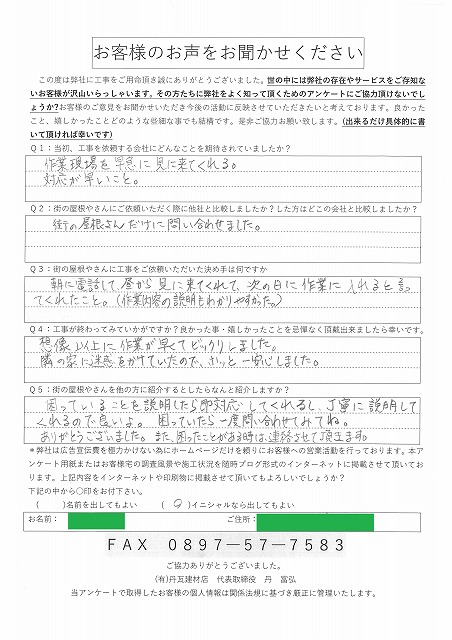 お客様のお声をお聞かせください
この度は弊社に工事をご用命頂き誠にありがとうございました。世の中には弊社の存在やサービスをご存知な
いお客様が沢山いらっしゃいます。その方たちに弊社をよく知って頂くためのアンケートにご協力頂けないでし
ょうか?お客様のご意見をお聞かせいただき今後の活動に反映させていただきたいと考えております。良かった
こと、嬉しかったことどのような些細な事でも結構です。是非ご協力お願い致します。(出来るだけ具体的に書
いて頂ければ幸いです)
Q1:当初、工事を依頼する会社にどんなことを期待されていましたか?
作業現場を早急に見に来てくれる。
対応が早いこと。
Q2:街の屋根やさんにご依頼いただく際に他社と比較しましたか?した方はどこの会社と比較しましたか?
街の屋根さんだけに問い合わせました。
Q3:街の屋根やさんに工事をご依頼いただいた決め手は何ですか
朝に電話して、昼から見に来てくれて、次の日に作業に入れると言っ
てくれたこと。(作業内容の説明もわかりやすかった。)
Q4:工事が終わってみていかがですか?良かった事・嬉しかったことを忌憚なく頂戴出来ましたら幸いです。
想像以上に作業が早くてビックリしました。
隣の家に迷惑をかけていたので、ホッと一安心しました。
Q5:街の屋根やさんを他の方に紹介するとしたらなんと紹介しますか?
困っていることを説明したら即対応してくれるし、丁寧に説明して
くれるので良いよ。困っていたら一度問い合わせてみてね。
ありがとうございました。また、困ったことがある時は連絡させて頂きます。
*弊社は広告宣伝費を極力かけない為にホームページだけを頼りにお客様への営業活動を行っております。本ア
ンケート用紙またはお客様宅の調査風景や施工状況を随時ブログ形式のインターネットに掲載させて頂いてお
ります。上記内容をインターネットや印刷物に掲載させて頂いてもよろしいでしょうか?
下記の中から〇印をお付け下さい。
( )名前を出してもよい ( 〇 )イニシャルなら出してもよい
お名前: ご住所:
FAX 0897-57-7583
ご協力ありがとうございました。
(有)丹瓦建材店 代表取締役 丹 冨弘
当アンケートで取得したお客様の個人情報は関係法規に基づき厳正に管理いたします。